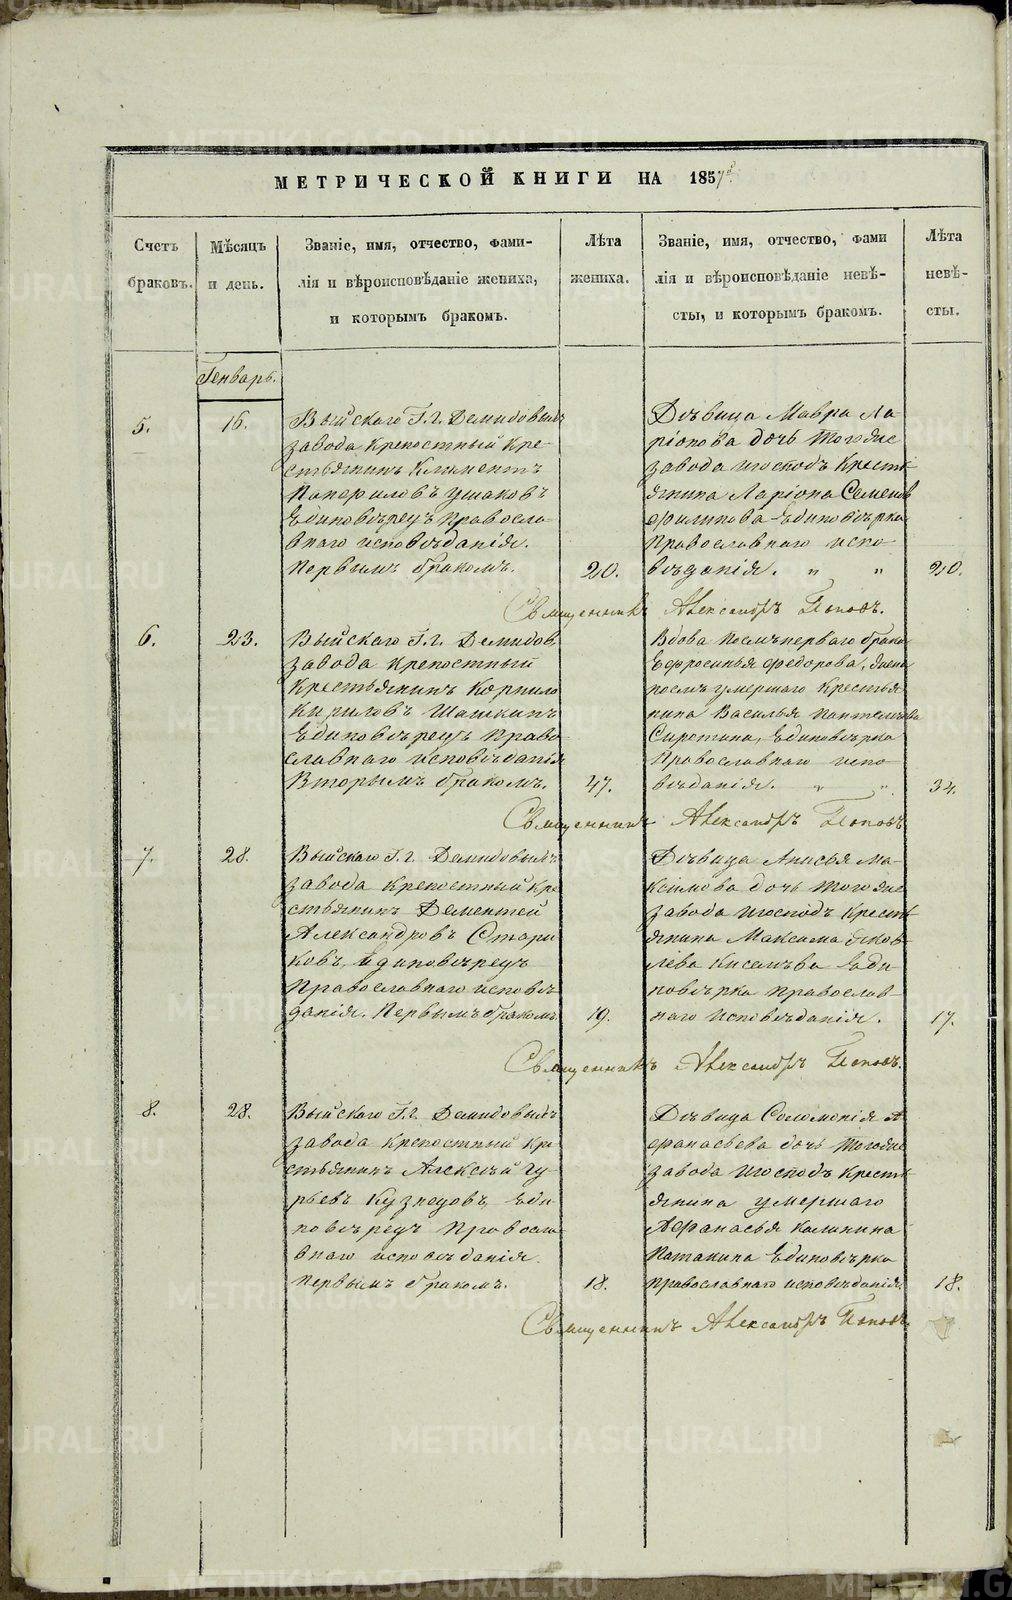 МЕТРИЧЕСКОЙ КНИГИ НА 1857й
Счетъ браковъ.
Мѣсяцъ и день.
Званіе, имя, отчество, фами-
лія и вѣроисповѣданіе жениха,
и которымъ бракомъ.
Лѣта жениха.
Званіе, имя, отчество, фами
лія и вѣроисповѣданіе невѣ-
сты, и которымъ бракомъ.
Лѣта невѣ-
сты.
Генварь.
5.
16.
Выйскаго Г. г. Демидовыхъ
завода крепостный кре-
стьянинъ Климентъ
Панфиловъ Ушаковъ
Единовѣрецъ Правосла-
внаго исповѣданія.
Первымъ бракомъ.
20.
Дѣвица Мавра Ла-
ріонова дочь тогоже
завода игосподъ крестъ
янина Ларіона Семенов
Филипова Единовѣрка
Православнаго испо
вѣданія. " "
20.
Священникъ Александръ Поповъ.
6.
23.
Выйскаго Г. г. Демидов.
завода крепостный
Крестьянинъ Корнило
Кириловъ Шашкинъ
Единовѣрецъ Право
славнаго исповѣданія
Вторымъ бракомъ.
47.
Вдова послѣ перваго брака
Ефросинья Федорова, жена
послѣ умершаго Крестья
нина Василья Пантелѣева
Сиротина, Единовѣрка
Православнаго испо
вѣданія. " "
34.
Священникъ Александръ Поповъ
7.
28.
Выйскаго Г. г. Демидовыхъ
завода крепостный кре
стьянинъ Дементей
Александровъ Стари
ковъ, единовѣрецъ
Православнаго исповѣ
данія. Первымъ бракомъ
19.
Дѣвица Анисья Ма-
ксимова дочь тогоже
завода игосподъ крестъ
янина Максима Яков-
лева Киселѣва Еди
новѣрка православ-
наго исповѣданія.
17.
Священникъ Александръ Поповъ.
8.
28.
Выйскаго Г. г. Демидовыхъ
завода крепостный кре
стьянинъ Алексѣй Гу-
рьевъ Кузнецовъ, Еди
новѣрецъ Правосла
внаго исповѣданія.
первымъ бракомъ.
18.
Дѣвица Соломонія А
фанасьева дочь тогоже
завода игосподъ крестъ
янина умершаго
Афанасья Калинина
Патанина Единовѣрка
православнаго исповѣданія.
18.
Священникъ Александръ Поповъ.
METRIKI.GASO-URAL.RU